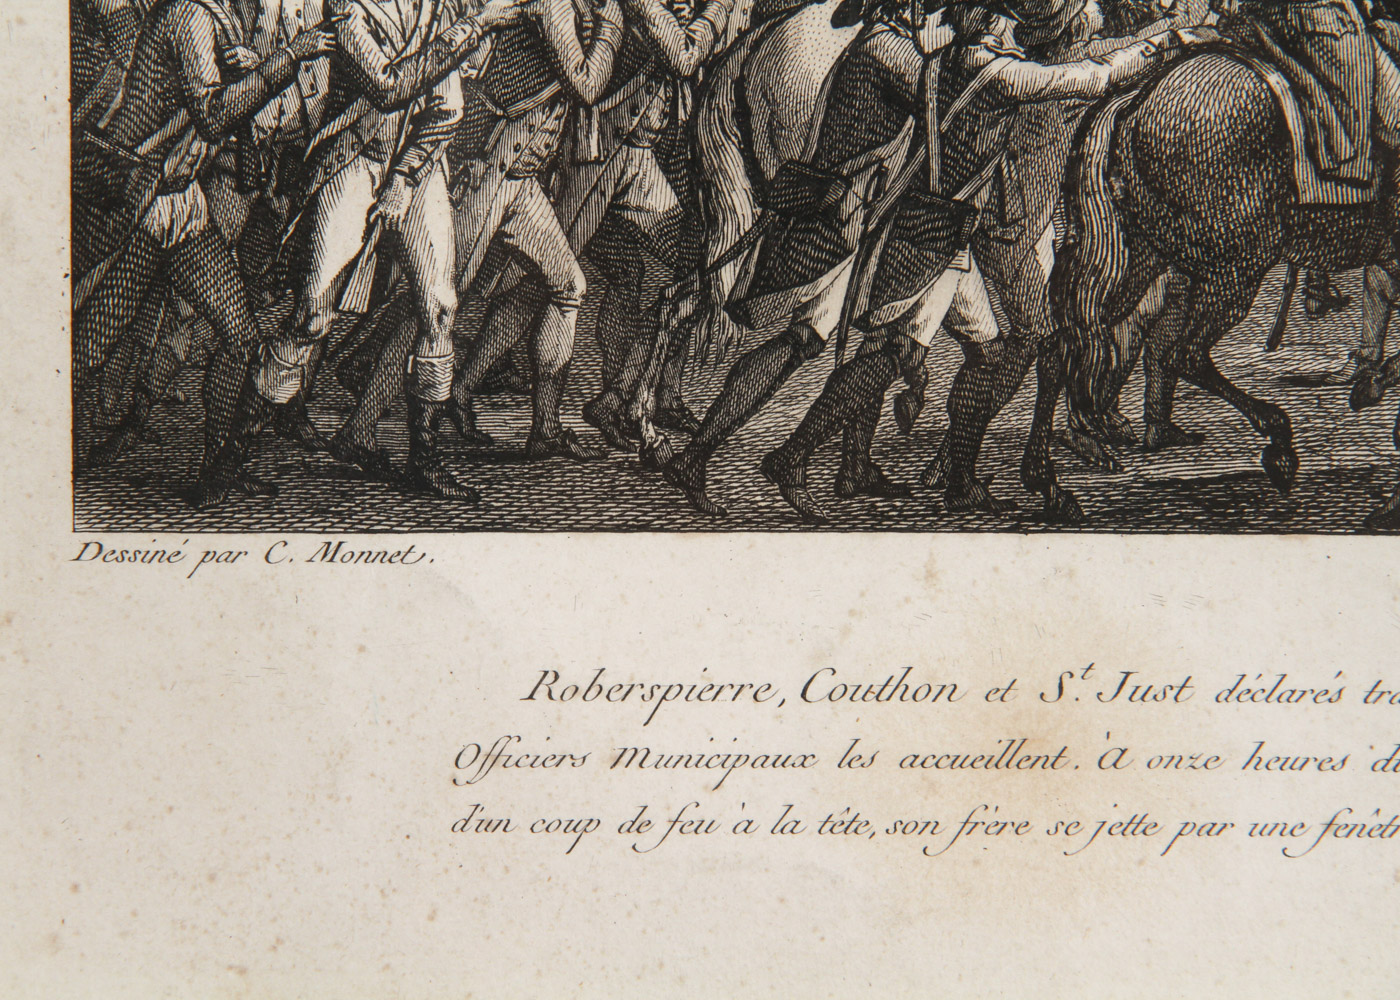 Dessiné par C. Monnet.
Roberspierre, Couthon et S.t Just déclarés
Officiers Municipaux les accueillent. à onze heures
d'un coup de feu à la tête, son frère se jette par une